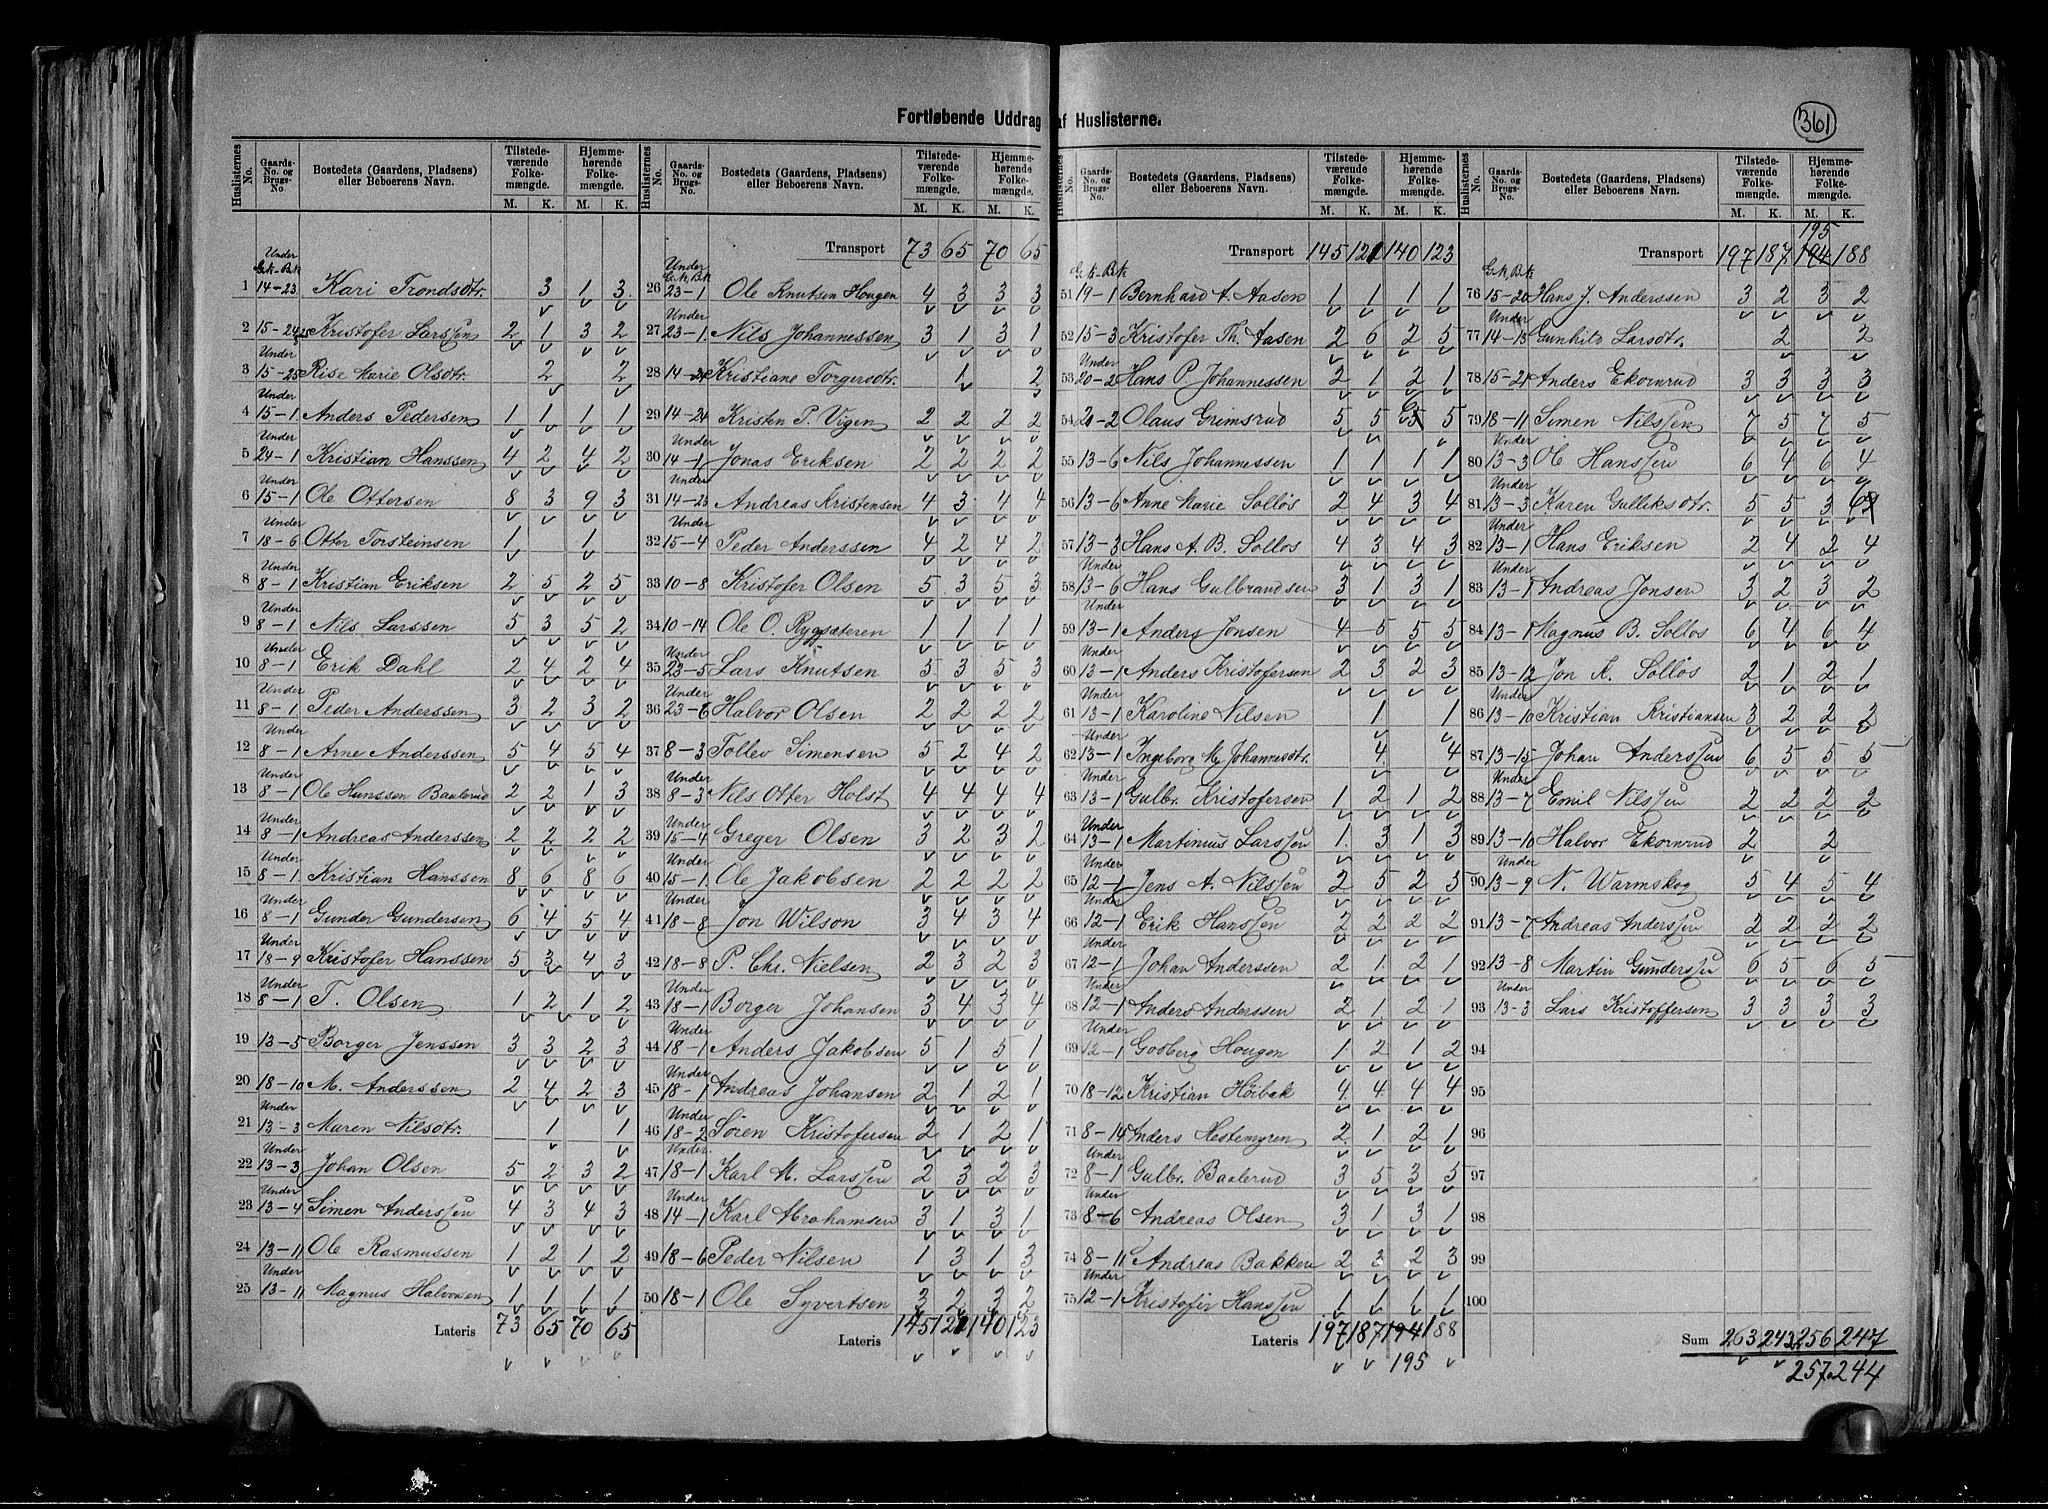 Fortløbende Uddrag af Huslisterne.
361
Huslisternes No. | Gaards-No. og Brugs-No. | Bostedets (Gaardens, Pladsens) eller Beboerens Navn. | Tilstedeværende Folkemængde. M. K. | Hjemmehørende Folkemængde. M. K.
Under Grk-Brk
1 14-23 Kari Trondsdtr. 3 1 3
2 15-24 Kristofer Larssen 2 1 3 2
Under
3 15-25 Rise Marie Olsdtr. 2 2
Under
4 15-1 Anders Pedersen 1 1 1 1
Under
5 24-1 Kristian Hanssen 4 2 4 2
Under
6 15-1 Ole Ottersen 8 3 9 3
Under
7 18-6 Otter Torsteinsen 1 1
Under
8 8-1 Kristian Eriksen 2 5 2 5
Under
9 8-1 Nils Larssen 5 3 5 2
Under
10 8-1 Erik Dahl 2 4 2 4
Under
11 8-1 Peder Anderssen 3 2 3 2
Under
12 8-1 Arne Anderssen 5 4 5 4
Under
13 8-1 Ole Hanssen Baalerud 2 2 1 3
Under
14 8-1 Andreas Anderssen 2 2 2 2
Under
15 8-1 Kristian Hanssen 8 6 8 6
Under
16 8-1 Gunder Gundersen 6 4 5 4
Under
17 18-9 Kristofer Hanssen 5 3 4 3
Under
18 8-1 T. Olsen 1 2 1 2
19 13-5 Borger Jenssen 3 3 2 3
20 18-10 M. Anderssen 2 4 2 3
Under
21 13-3 Maren Nilsdtr. 1 1
Under
22 13-3 Johan Olsen 5 2 3 2
Under
23 13-4 Simen Anderssen 4 3 4 3
24 13-11 Ole Rasmussen 1 2 1 2
Under
25 13-11 Magnus Halvorsen 1 1 1 1
Lateris 73 65 70 65
Huslisternes No. | Gaards-No. og Brugs-No. | Bostedets (Gaardens, Pladsens) eller Beboerens Navn. | Tilstedeværende Folkemængde. M. K. | Hjemmehørende Folkemængde. M. K.
Transport 73 65 70 65
Under Grk, Brk
26 23-1 Ole Knutsen Hougen 4 3 3 3
Under
27 23-1 Nils Johannessen 3 1 3 1
28 14-24 Kristiane Torgersdtr. 1 2
29 14-24 Kristen P. Vigen 2 2 2 2
Under
30 14-1 Jonas Eriksen 2 2 2 2
Under
31 14-23 Andreas Kristensen 4 3 4 4
Under
32 15-4 Peder Anderssen 4 2 4 2
33 10-8 Kristofer Olsen 5 3 5 3
34 10-14 Ole O. Rygsæteren 1 1 1 1
Under
35 23-5 Lars Knutsen 5 3 5 3
Under
36 23-6 Halvor Olsen 2 2 2 2
37 8-3 Tollev Simensen 5 2 4 2
Under
38 8-3 Nils Otter Holst 4 4 4 4
Under
39 15-4 Greger Olsen 3 2 3 2
Under
40 15-1 Ole Jakobsen 2 2 2 2
Under
41 18-8 Jon Wilson 3 4 3 4
42 18-8 P. Chr. Nielsen 2 3 2 3
Under
43 18-1 Borger Johansen 3 4 3 4
Under
44 18-1 Anders Jakobsen 5 1 5 1
Under
45 18-1 Andreas Johansen 2 1 2 1
Under
46 18-2 Sören Kristofersen 2 1 2 1
Under
47 18-1 Karl M. Larssen 2 3 2 3
Under
48 14-1 Karl Abrahamsen 3 1 3 1
49 18-6 Peder Nilsen 1 3 1 3
50 18-1 Ole Syvertsen 3 2 3 2
Lateris 145 120 140 123
Huslisternes No. | Gaards-No. og Brugs-No. | Bostedets (Gaardens, Pladsens) eller Beboerens Navn. | Tilstedeværende Folkemængde. M. K. | Hjemmehørende Folkemængde. M. K.
Transport 145 120 140 123
Grk-Brk
51 19-1 Bernhard A. Aasen 1 1 1 1
52 15-3 Kristofer Th. Aasen 2 6 2 5
Under
53 20-2 Hans P. Johannessen 2 1 2 1
54 20-2 Olaus Grimsrud 5 5 5 5
55 13-6 Nils Johannessen 1 1 1 1
56 13-6 Anne Marie Sollös 2 4 3 4
57 13-3 Hans A. B. Sollös 4 3 4 3
Under
58 13-6 Hans Gulbrandsen 3 1 3 1
Under
59 13-1 Anders Jonsen 4 5 5 5
Under
60 13-1 Anders Kristofersen 2 3 2 3
61 13-1 Karoline Nilsen 1 1
Under
62 13-1 Ingeborg M. Johannesdtr. 4 4
Under
63 13-1 Gulbr. Kristofersen 1 2 1 2
Under
64 13-1 Martinius Larssen 1 3 1 3
Under
65 12-1 Jens A. Nilssen 2 5 2 5
Under
66 12-1 Erik Hanssen 2 2 2 2
Under
67 12-1 Johan Anderssen 2 1 2 1
Under
68 12-1 Anders Anderssen 2 1 2 1
Under
69 12-1 Godberg Hougen 1 2 1 2
70 18-12 Kristian Höibak 4 4 4 4
71 8-14 Anders Hestemyren 2 1 2 1
Under
72 8-1 Gulbr. Baalerud 3 5 3 5
73 8-6 Andreas Olsen 3 1 3 1
74 8-11 Andreas Bakken 2 3 2 3
Under
75 12-1 Kristofer Hanssen 1 1 1 1
Lateris 197 187 194 188
195
Huslisternes No. | Gaards-No. og Brugs-No. | Bostedets (Gaardens, Pladsens) eller Beboerens Navn. | Tilstedeværende Folkemængde. M. K. | Hjemmehørende Folkemængde. M. K.
195
Transport 197 187 194 188
Grk, Brk
76 15-20 Hans J. Anderssen 3 2 3 2
Under
77 14-13 Gunhild Larsdtr. 2 2
78 15-21 Anders Ekornrud 3 3 3 3
79 18-11 Simen Nilssen 7 5 7 5
Under
80 13-3 Ole Hanssen 6 4 6 4
Under
81 13-3 Karen Gulliksdtr. 5 5 3
Under
82 13-1 Hans Eriksen 2 4 2 4
Under
83 13-1 Andreas Jonsen 3 2 3 2
84 13-1 Magnus B. Sollös 6 4 6 4
85 13-12 Jon A. Sollös 2 1 2 1
Under
86 13-10 Kristian Kristiansen 3 2 2 2
87 13-15 Johan Anderssen 6 5 5 5
Under
88 13-7 Emil Nilssen 2 2 2 2
89 13-10 Halvor Ekornrud 2 2
Under
90 13-9 N. Warmskog 5 4 5 4
91 13-7 Andreas Anderssen 2 2 2 2
92 13-8 Martin Gunderssen 6 5 6 5
Under
93 13-3 Lars Kristoffersen 3 3 3 3
94
95
96
97
98
99
100
Sum 263 243 256 247
257 244